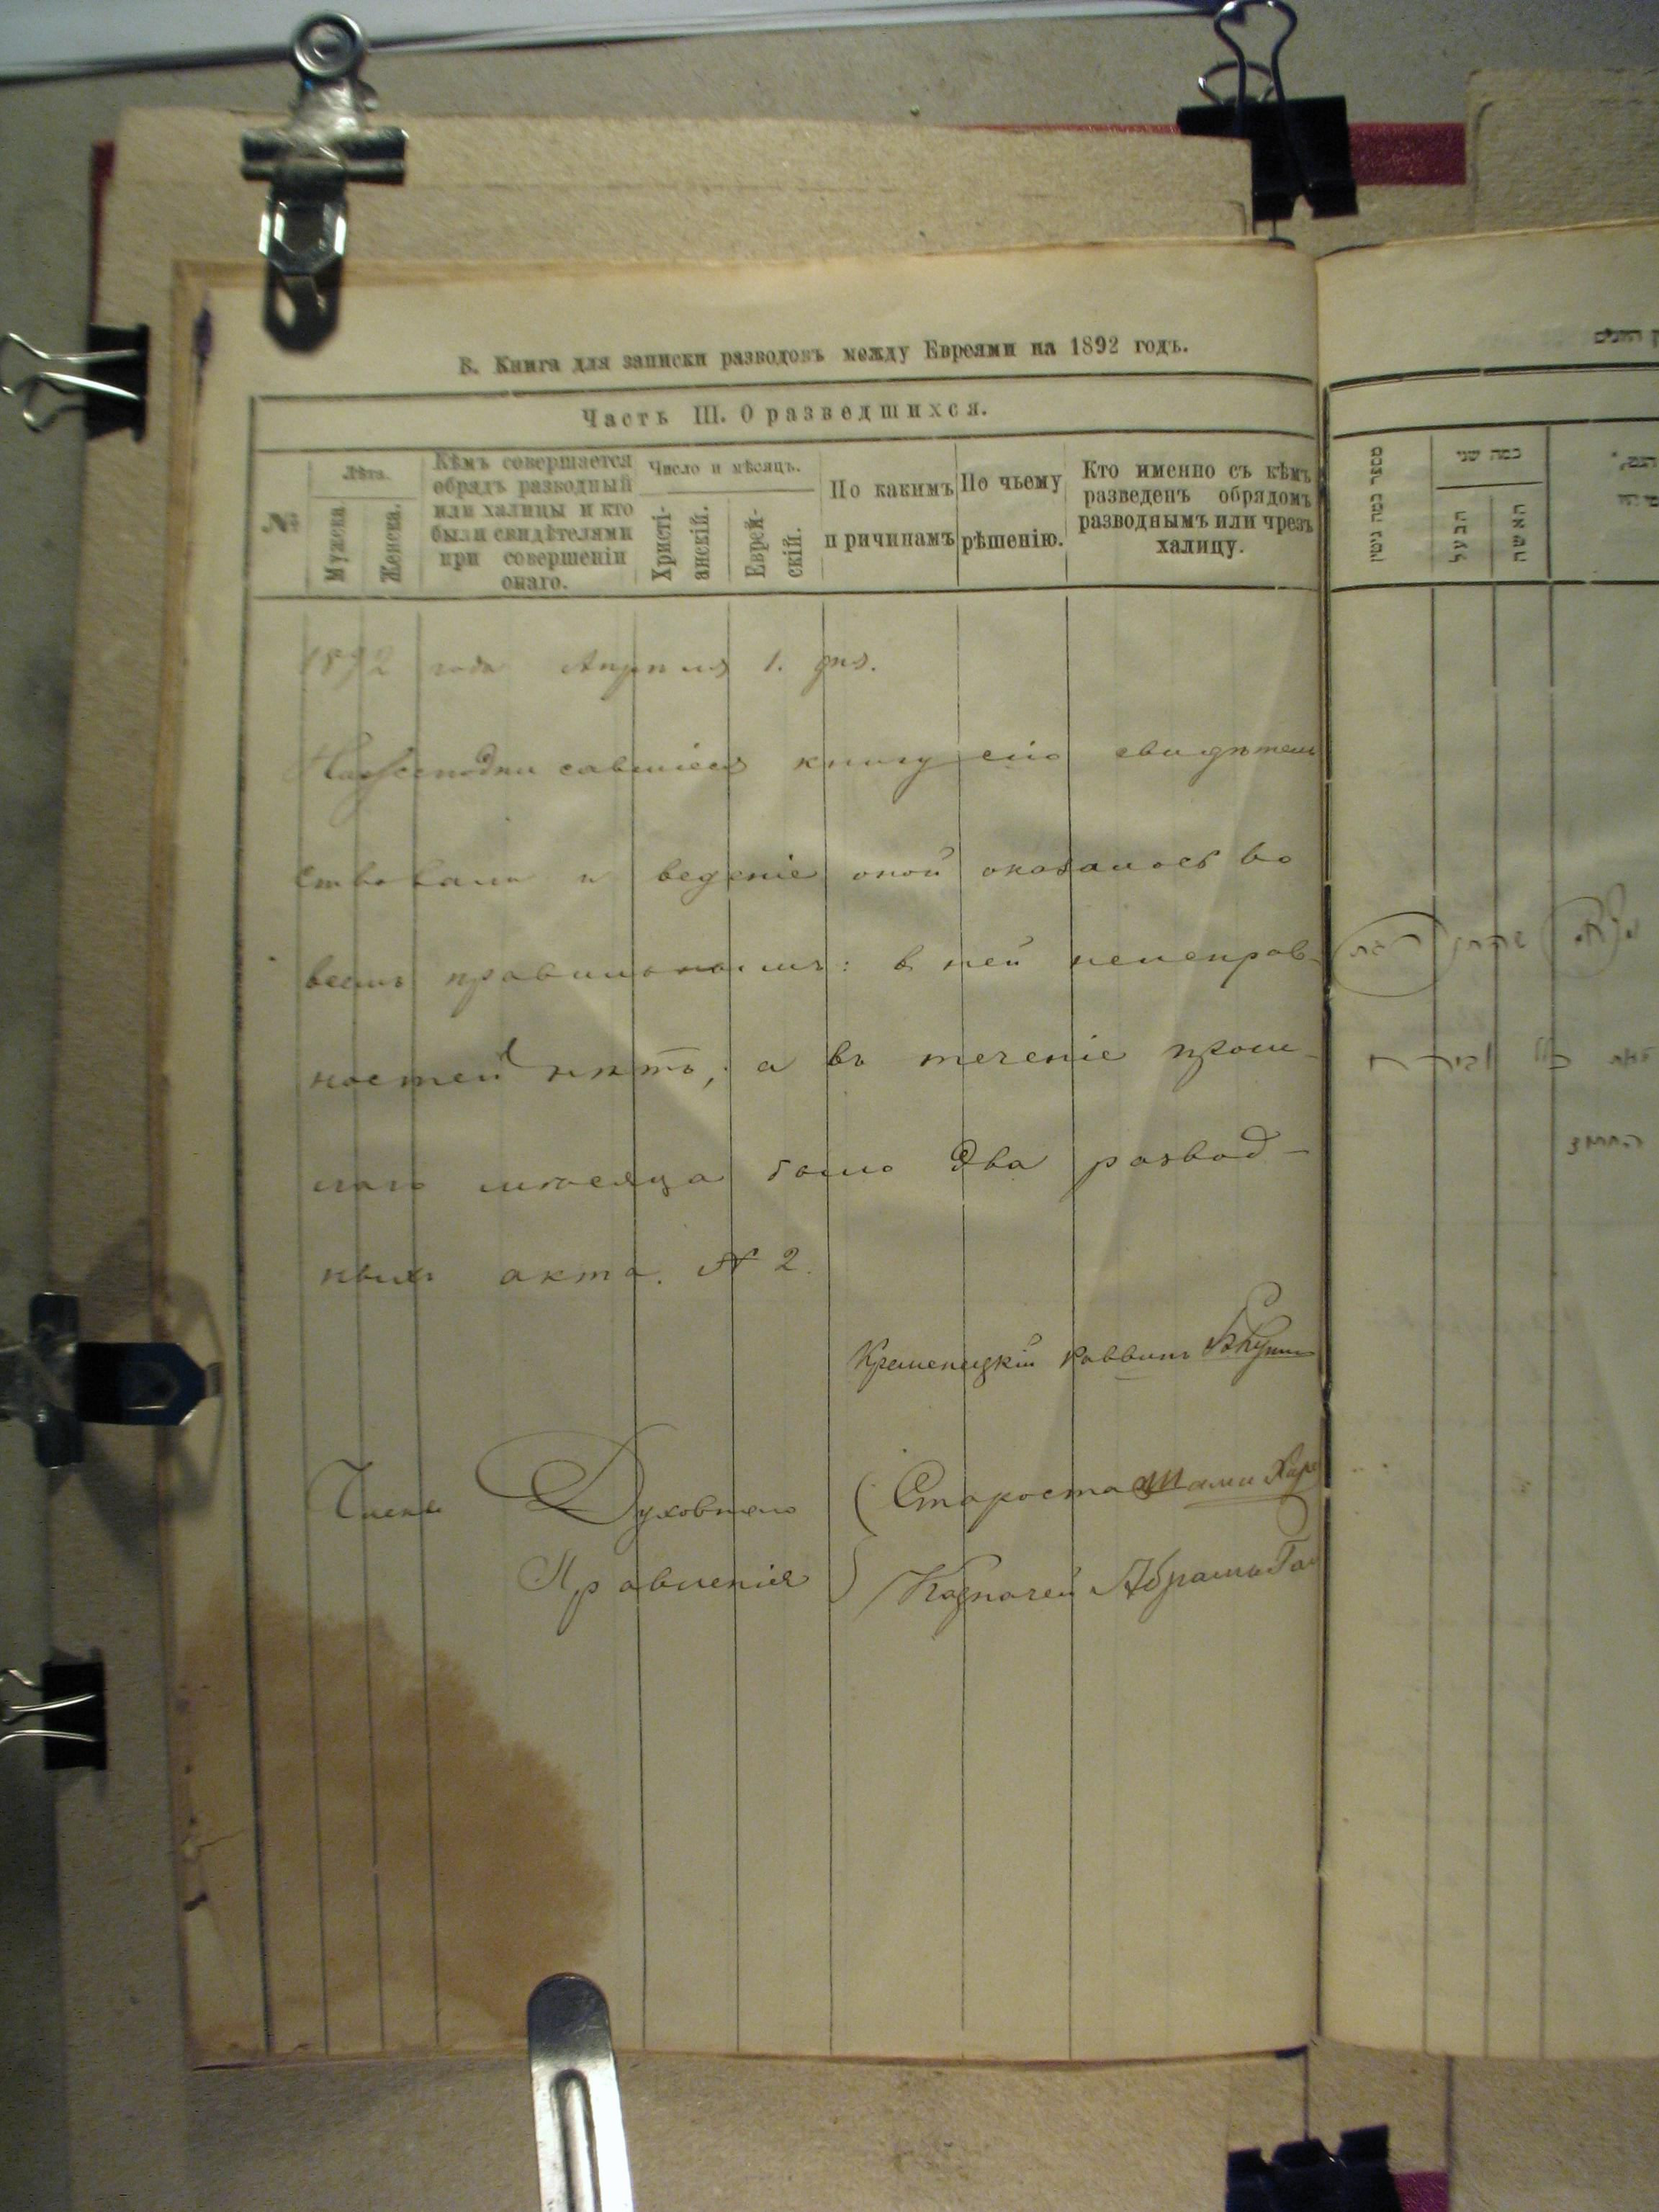 В. Книга для записки разводовъ между Евреями на 1892 годъ.
Часть III. О разведшихся.
№
Лѣта.
Мужеска.
Женска.
Кѣмъ совершается
обрядъ разводный
или халицы и кто
были свидѣтелями
при совершеніи
онаго.
Число и мѣсяцъ.
Христі-
анскій.
Еврей-
скій.
По какимъ
причинамъ
По чьему
рѣшенію.
Кто именно съ кѣмъ
разведенъ обрядомъ
разводнымъ или чрезъ
халицу.
1892 года Апрѣля 1. дня.
Нижеподписавшіеся книгу сію свидѣтель
ствовали и веденіе оной оказалось во
всемъ правильнымъ: в ней неисправ-
ностей нѣтъ, а въ теченіе прош-
лаго мѣсяца было два развод-
ныхъ акта. № 2.
Кременецкій Раввинъ
Члены Духовнаго ( Староста
Правленія ) Казначей Абрамъ
מספר כמה גיטין
כמה שני
הבעל
האשה